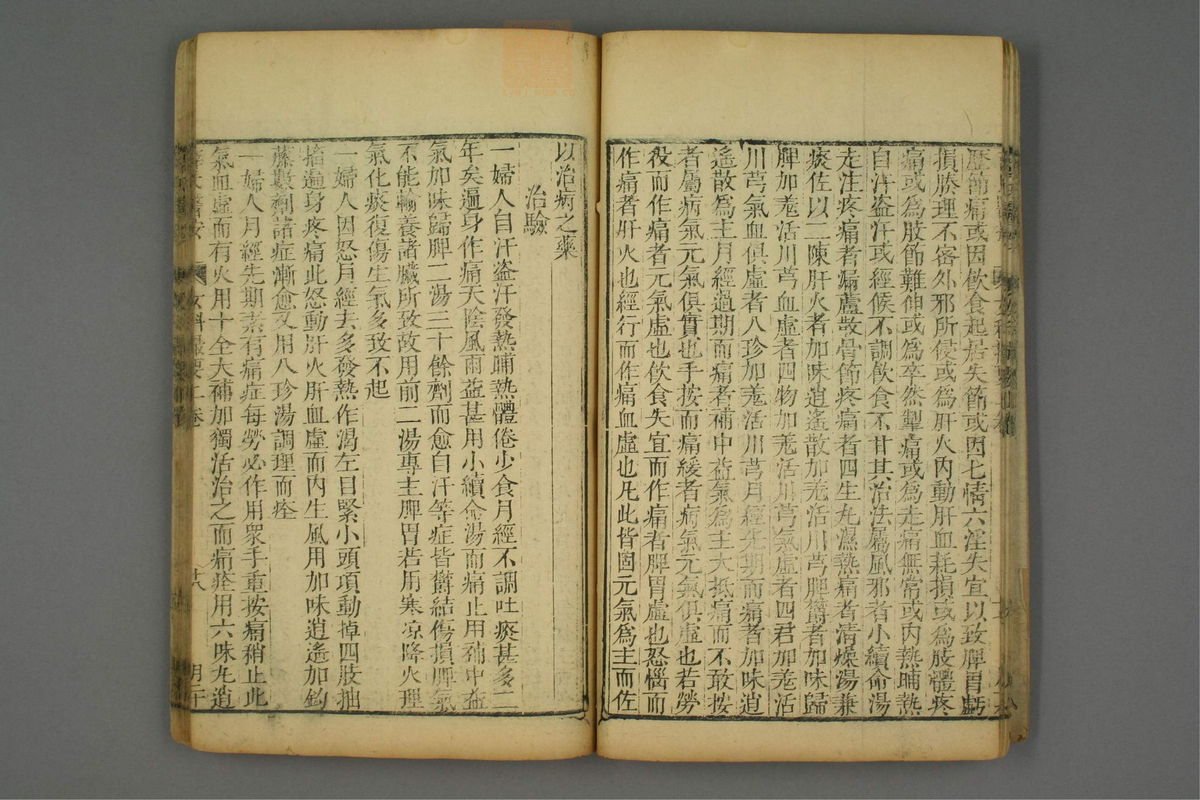 歷節痛或因飲食起居失節或因七情六淫失宜以致脾胃虧
損腠理不密外邪所侵或為肝火內動肝血耗損或為肢體疼
痛或為肢節難伸或為卒然攣痛或為走痛無常或內熱晡熱
自汗盜汗或經候不調飲食不甘其治法屬風邪者小續命湯
走注疼痛者漏蘆散骨節疼痛者四生丸濕熱痛者清燥湯兼
痰佐以二陳肝火者加味逍遙散加羌活川芎脾鬱者加味歸
脾加羌活川芎血虛者四物加羌活川芎氣虛者四君加羌活
川芎氣血俱虛者八珍加羌活川芎月經先期而痛者加味逍
遙散為主月經過期而痛者補中益氣為主大抵痛而不敢按
者屬病氣元氣俱實也手按而痛緩者病氣元氣俱虛也若勞
役而作痛者元氣虛也飲食失宜而作痛者脾胃虛也怒惱而
作痛者肝火也經行而作痛血虛也凡此皆固元氣為主而佐
以治病之藥
治驗
一婦人自汗盜汗發熱晡熱體倦少食月經不調吐痰甚多二
年矣遍身作痛天陰風雨益甚用小續命湯而痛止用補中益
氣加味歸脾二湯三十餘劑而愈自汗等症皆鬱結傷損脾氣
不能輸養諸臟所致故用前二湯專主脾胃若用寒凉降火理
氣化痰復傷生氣多致不起
一婦人因怒月經去多發熱作渴左目緊小頭項動掉四肢抽
搐遍身疼痛此怒動肝火肝血虛而內生風用加味逍遙加鈎
藤數劑諸症漸愈又用八珍湯調理而痊
一婦人月經先期素有痛症每勞必作用衆手重按痛稍止此
氣血虛而有火用十全大補加獨活治之而痛痊用六味丸逍
女科撮要上卷